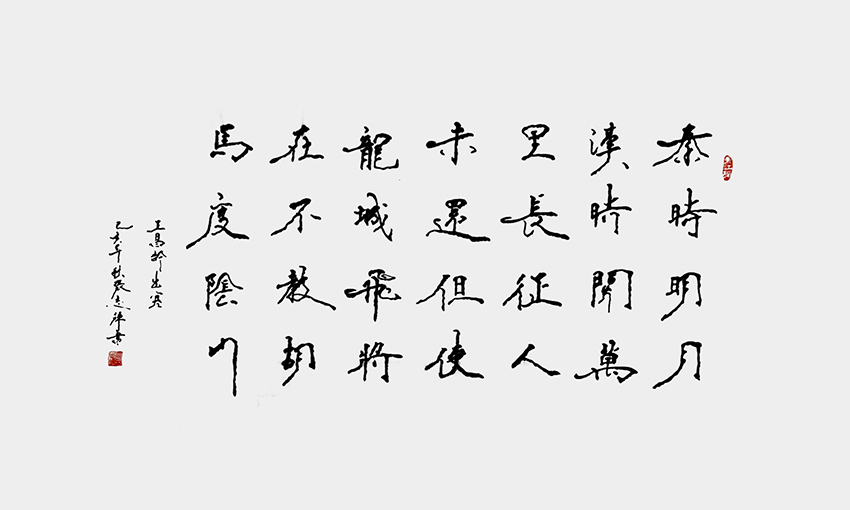 秦時明月
漢時關萬
里長征人
未還但使
龍城飛將
在不教胡
馬度陰山
王昌齡出塞
己亥年秋張志書